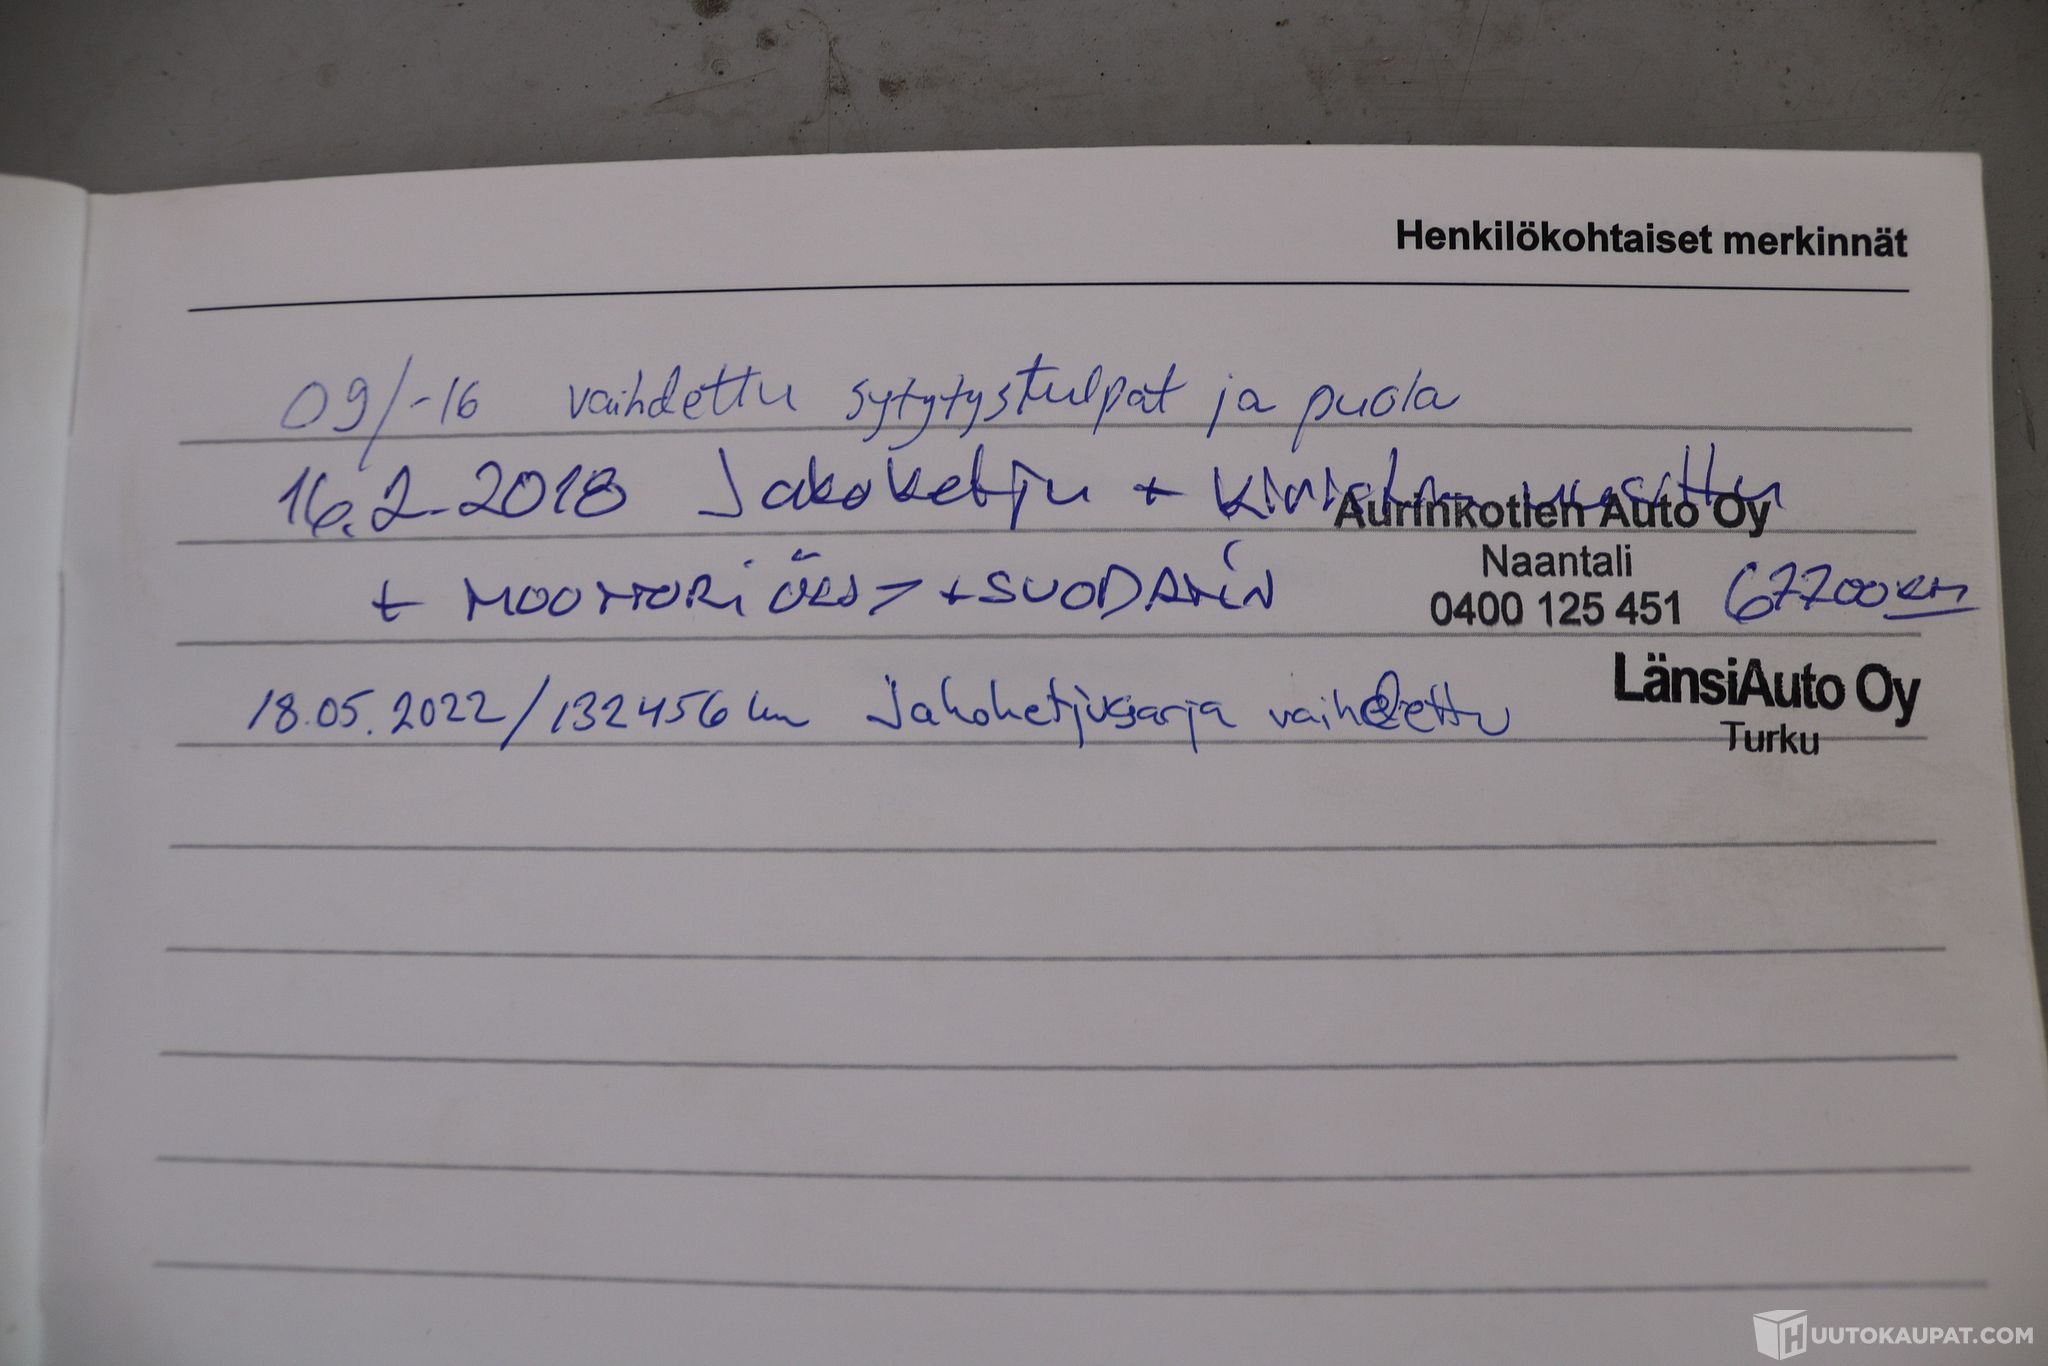 Henkilökohtaiset merkinnät
09/-16 vaihdettu sytytystulpat ja puola
16.2.2018 Jakoketju + kiristin uusittu
Aurinkotien Auto Oy
Naantali
+ MOOTTORiÖLJY + SUODATiN
0400 125 451 67700KM
18.05.2022/132456 km Jakoketjusarja vaihdettu
LänsiAuto Oy
Turku
HUUTOKAUPAT.COM